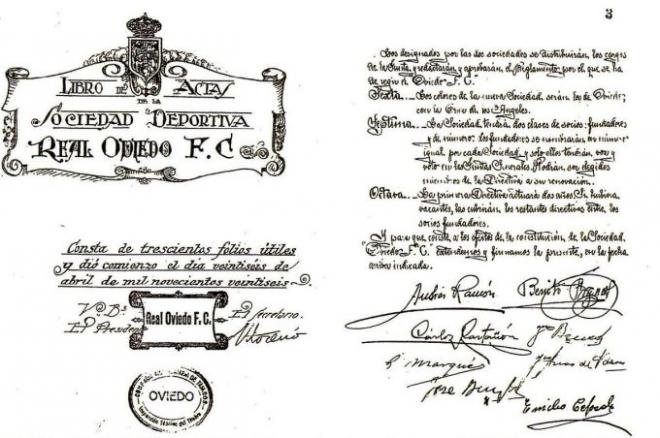 LIBRO DE ACTAS
DE LA
SOCIEDAD DEPORTIVA
REAL OVIEDO F.C
Consta de trescientos folios útiles
y dió comienzo el dia veintiséis de
abril de mil novecientos veintiseis.
Vº Bº
El Presidente
Real Oviedo F. C.
El Secretario
OVIEDO
3
Los designados por las dos sociedades se distribuirán los cargos
de la Junta, y redactarán y aprobarán el Reglamento por el que se ha
de regir el Oviedo F. C.
Sexta.— Los colores de la nueva Sociedad serán los de Oviedo;
con la Cruz de los Angeles.
Septima.— La Sociedad tendrá dos clases de socios: fundadores
y de número. Los fundadores se nombrarán en número
igual por cada Sociedad y solo ellos tendrán voz y
voto en las Juntas Generales. Podrán ser elegidos
miembros de la Directiva a su renovación.
Octava.— La primera Directiva actuará dos años. Si hubiera
vacantes, las cubrirán los restantes directivos entre los
socios fundadores.
Y para que conste, a los efectos de la constitución de la Sociedad
Oviedo F. C. extendemos y firmamos la presente, en la fecha
arriba indicada.
Ramón
Benito
Carlos
Marqués
Jose
Emilio